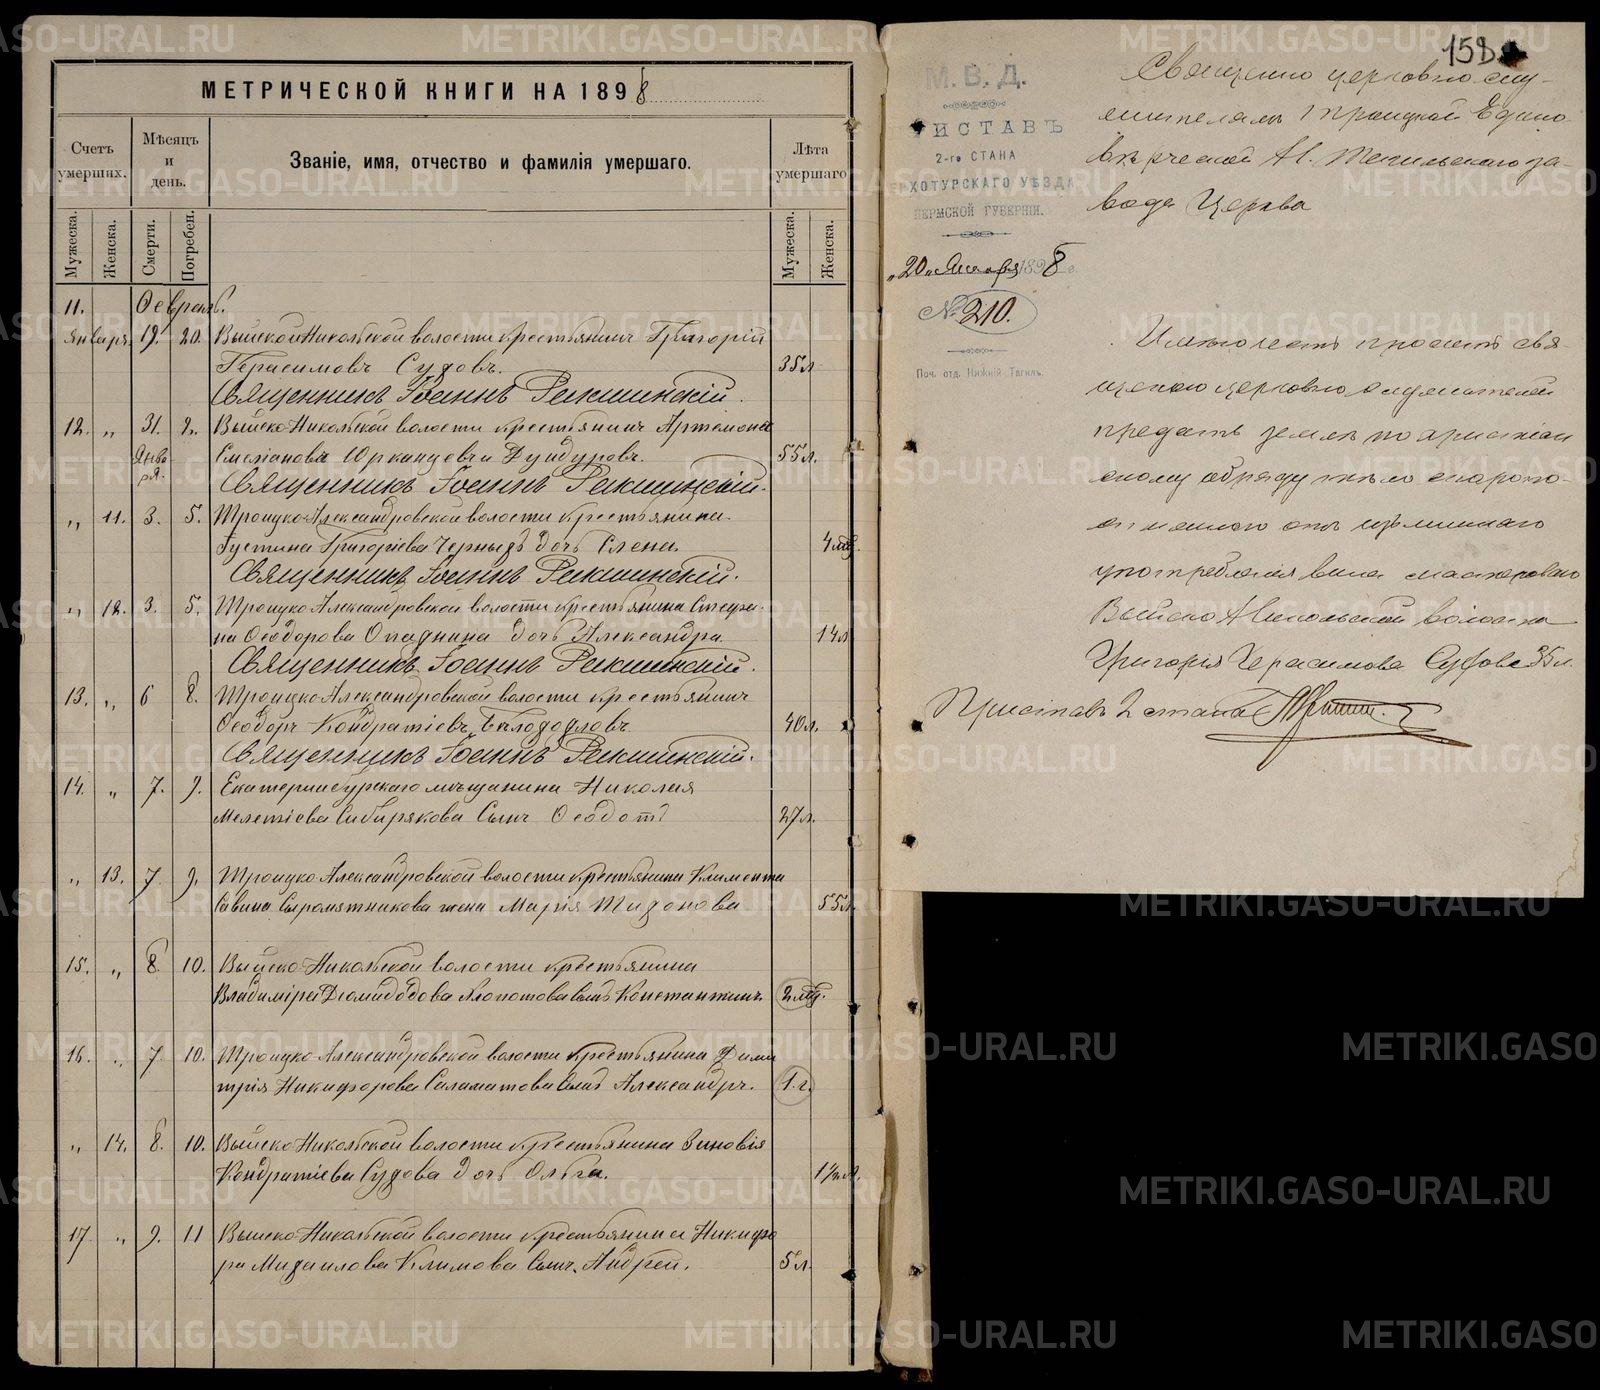 МЕТРИЧЕСКОЙ КНИГИ НА 1898
Счетъ умершихъ.
Мѣсяцъ и день.
Званіе, имя, отчество и фамилія умершаго.
Лѣта умершаго
Мужеска.
Женска.
Смерти.
Погребен.
Мужеска.
Женска.
11. Февраль.
января 19. 20. Выйско Никольской волости крестьянинъ Григорій
Герасимовъ Судовъ. 35 л
Священникъ Іоаннъ Рекшинскій.
12. „ 31. 2. Выйско-Никольской волости крестьянинъ Артемонъ
Янва Емеліановъ 55 л.
ря.
Священникъ Іоаннъ Рекшинскій.
„ 11. 3. 5. Троицко-Александровской волости крестьянина
Густина Григоріева Черныхъ дочь Елена. 4 мѣс.
Священникъ Іоаннъ Рекшинскій.
„ 12. 3. 5. Троицко Александровской волости крестьянина Стефа-
на Ѳеодорова Опаднина дочь Александра 14 л
Священникъ Іоаннъ Рекшинскій.
13. „ 6 8. Троицко Александровской волости крестьянинъ
Ѳеодоръ Кондратіевъ 40 л.
Священникъ Іоаннъ Рекшинскій.
14. „ 7. 9. Екатеринбургскаго мѣщанина Николая
Мелетіева Сибирякова сынъ Ѳеодотъ 27 л.
„ 13. 7 9. Троицко Александровской волости крестьянина Климента
Савина Сыромятникова жена Марія Тихонова 55 л.
15. „ 8. 10. Выйско-Никольской волости крестьянина
Владиміра Діомидодова Хлопотова сынъ Константинъ. 2 мѣс.
16. „ 7. 10. Троицко Александровской волости крестьянина Дими
трія Никифорова Саламатова сынъ Александръ. 1 г.
„ 14. 8. 10. Выйско Никольской волости крестьянина Зиновія
Кондратіева Судова дочь Ольга.
17 „ 9. 11 Выйско-Никольской волости крестьянина Никифо
ра Михаилова Климова сынъ Андрей. 5 л.
158
М. В. Д.
ПРИСТАВЪ
2-го СТАНА
ВЕРХОТУРСКАГО УѢЗДА
ПЕРМСКОЙ ГУБЕРНІИ.
„20„ Января 1898 г.
№ 210.
Поч. отд. Нижній Тагилъ.
Священно церковно слу-
жителямъ Троицкой Едино
вѣрческой Н. Тагильскаго за-
вода Церкви
Имѣю честь просить свя-
щенно церковно служителей
предать землѣ по христіан
скому обряду тѣло скоропо-
стижнаго отъ излишняго
употребленія вина мастероваго
Выйско Никольской волости
Григорія Герасимова Судова 35 л.
Приставъ 2 стана
METRIKI.GASO-URAL.RU